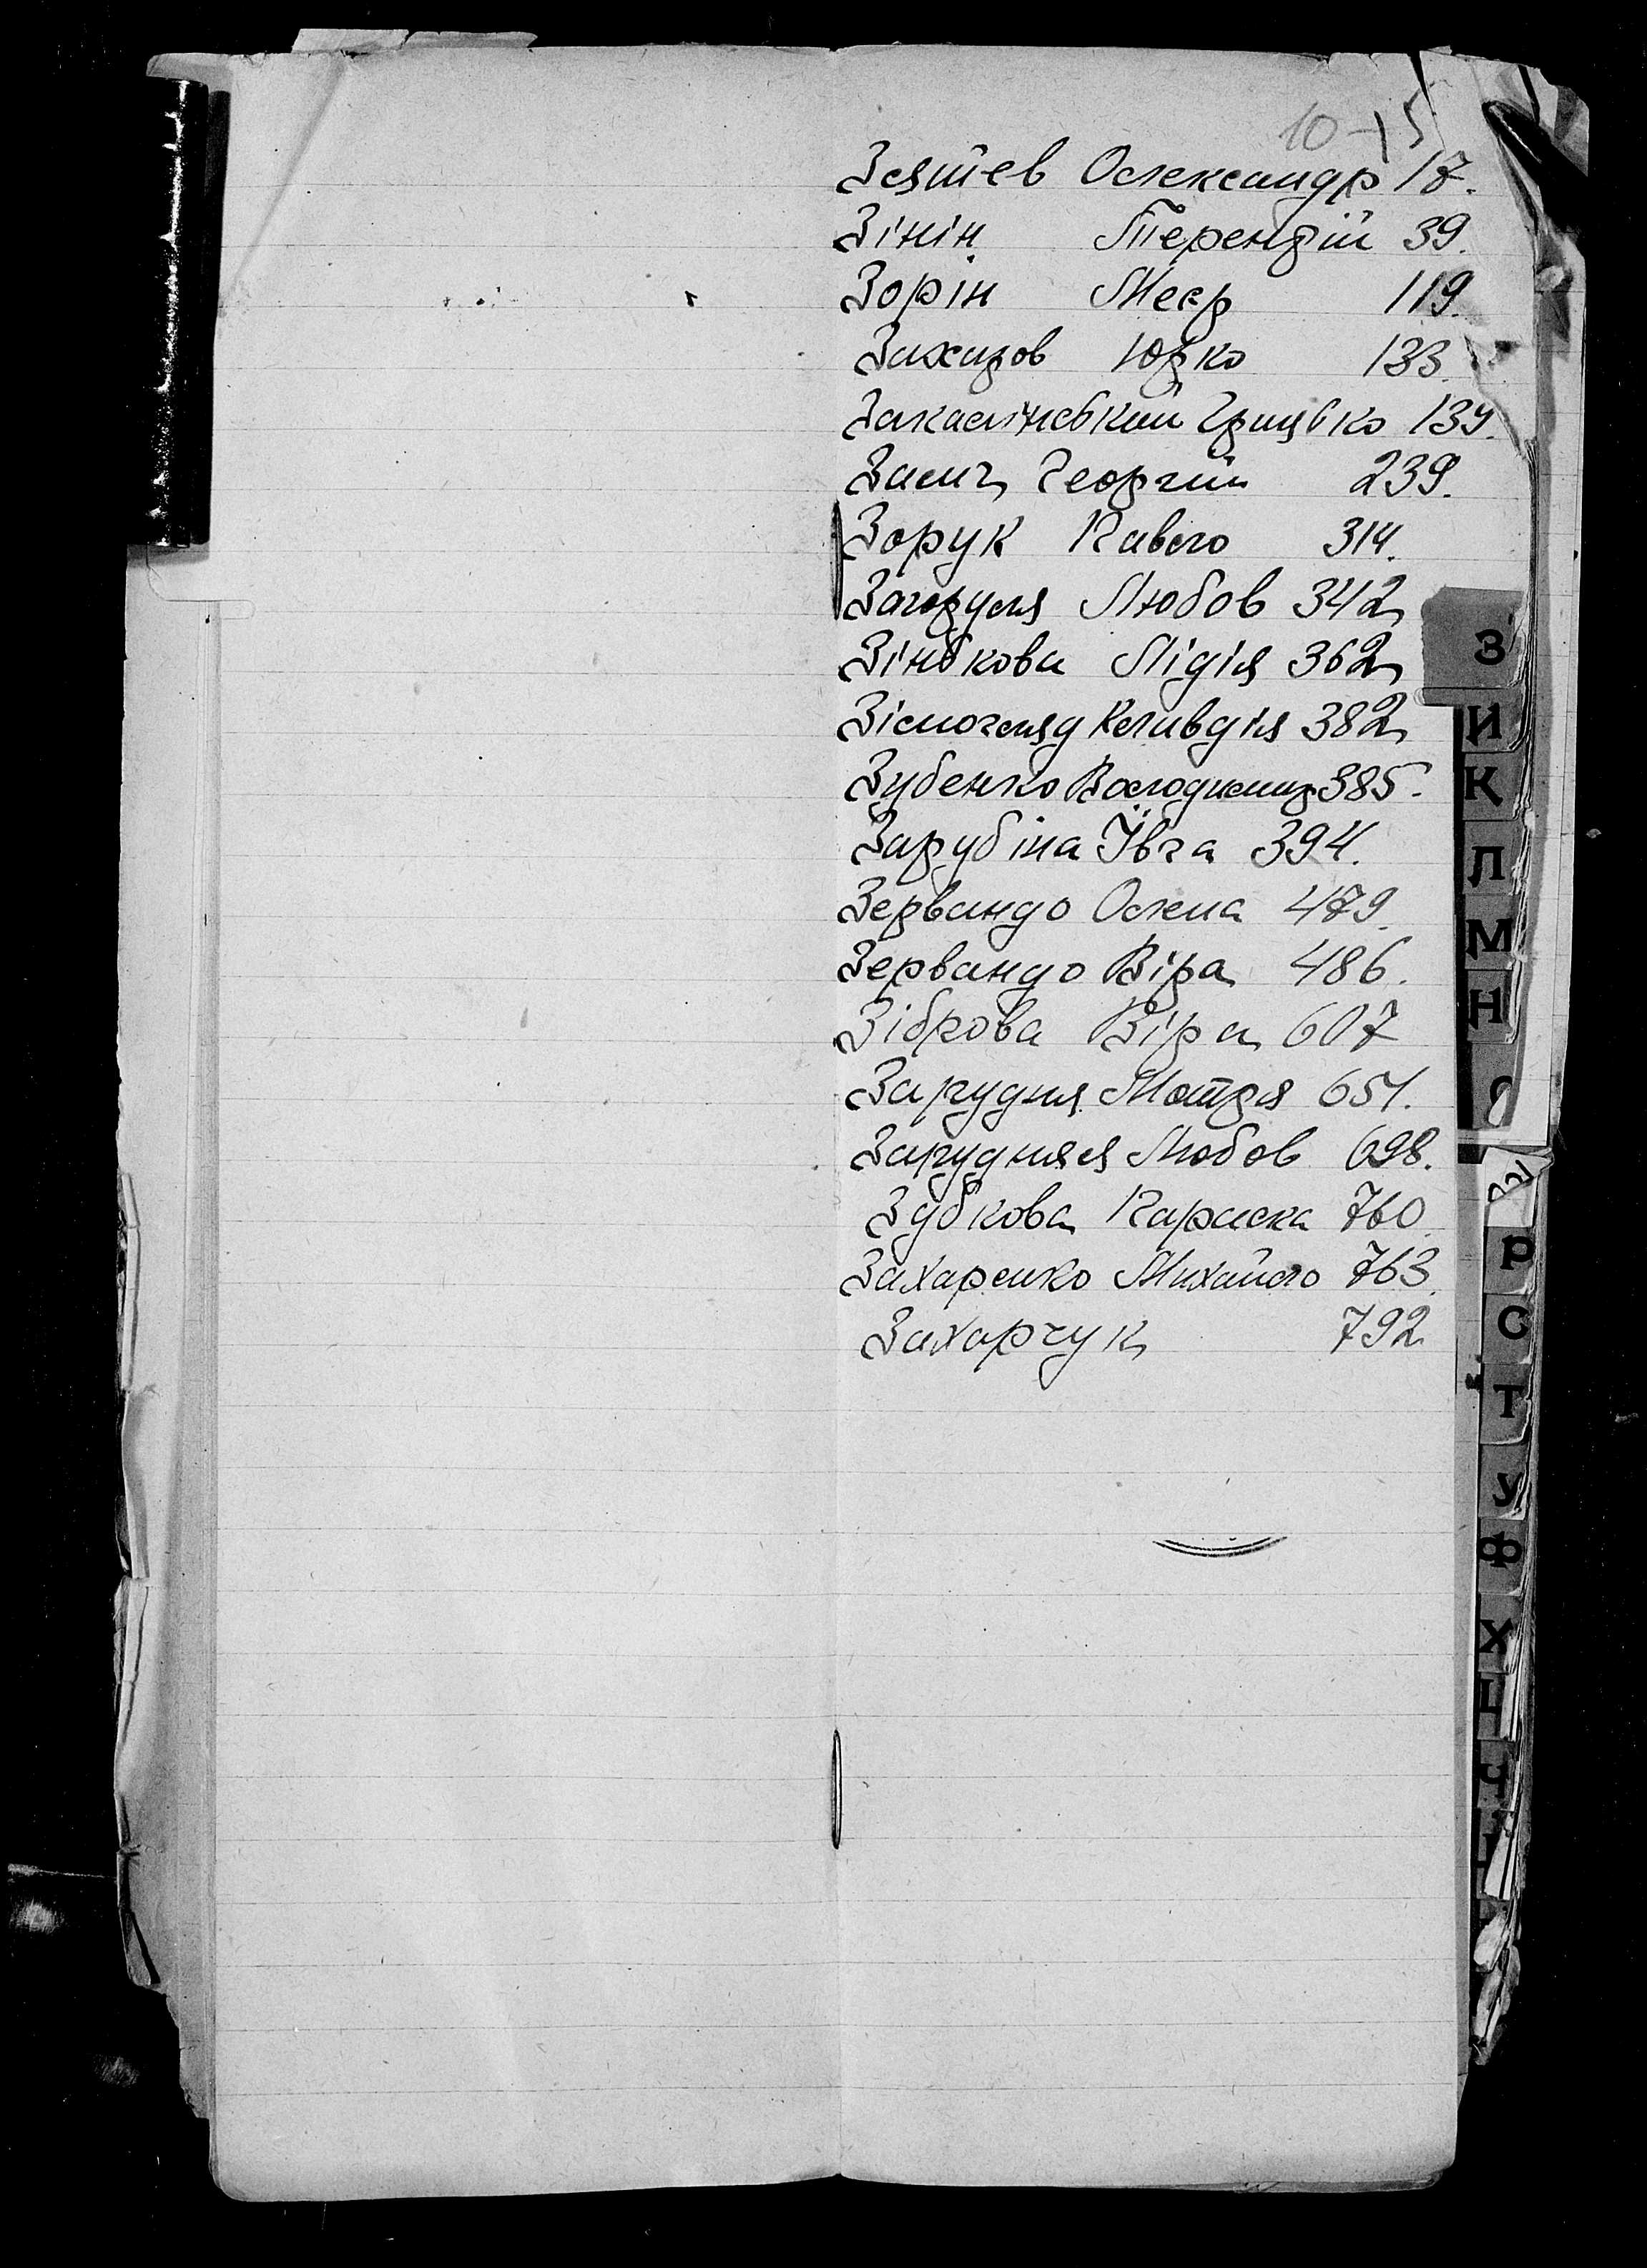 10-15
Зятев Олександр 17.
Зінін Терентій 39.
Зорін Меєр 119.
Захаров Юрко 133.
Закаслінський Грицько 134.
Заєць Георгій 239.
Зорук Павло 314.
Загоруля Любов 342
Зінькова Лідія 362
Зісмогляд Клавдія 382
Зубенко Володимир 385.
Зарубіна Ївга 394.
Зервандо Олена 479.
Зервандо Віра 486.
Зіброва Віра 607
Зарудня Мотря 651.
Зарудняя Любов 698.
Зубкова Параска 760.
Захаренко Михайло 763.
Захарчук 792
З
И
К
Л
М
Н
О
Р
С
Т
У
Ф
Х
Ц
Ч